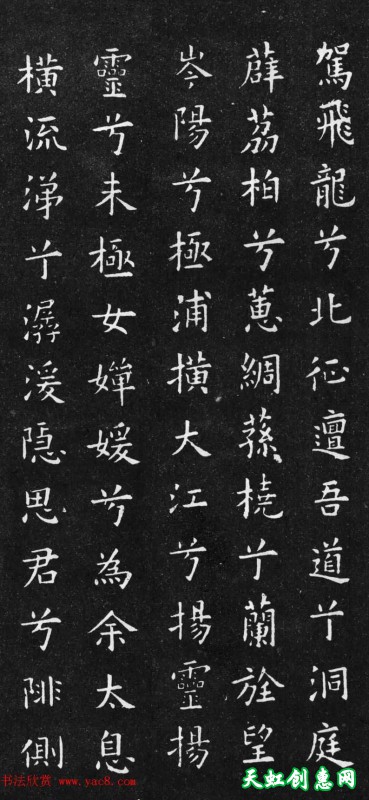 駕飛龍兮北征邅吾道兮洞庭
薜荔柏兮蕙綢蓀橈兮蘭旌望
岑陽兮極浦橫大江兮揚靈揚
靈兮未極女嬋媛兮為余太息
橫流涕兮潺湲隱思君兮陫側
书法欣赏 www.yac8.com
天虹创意网